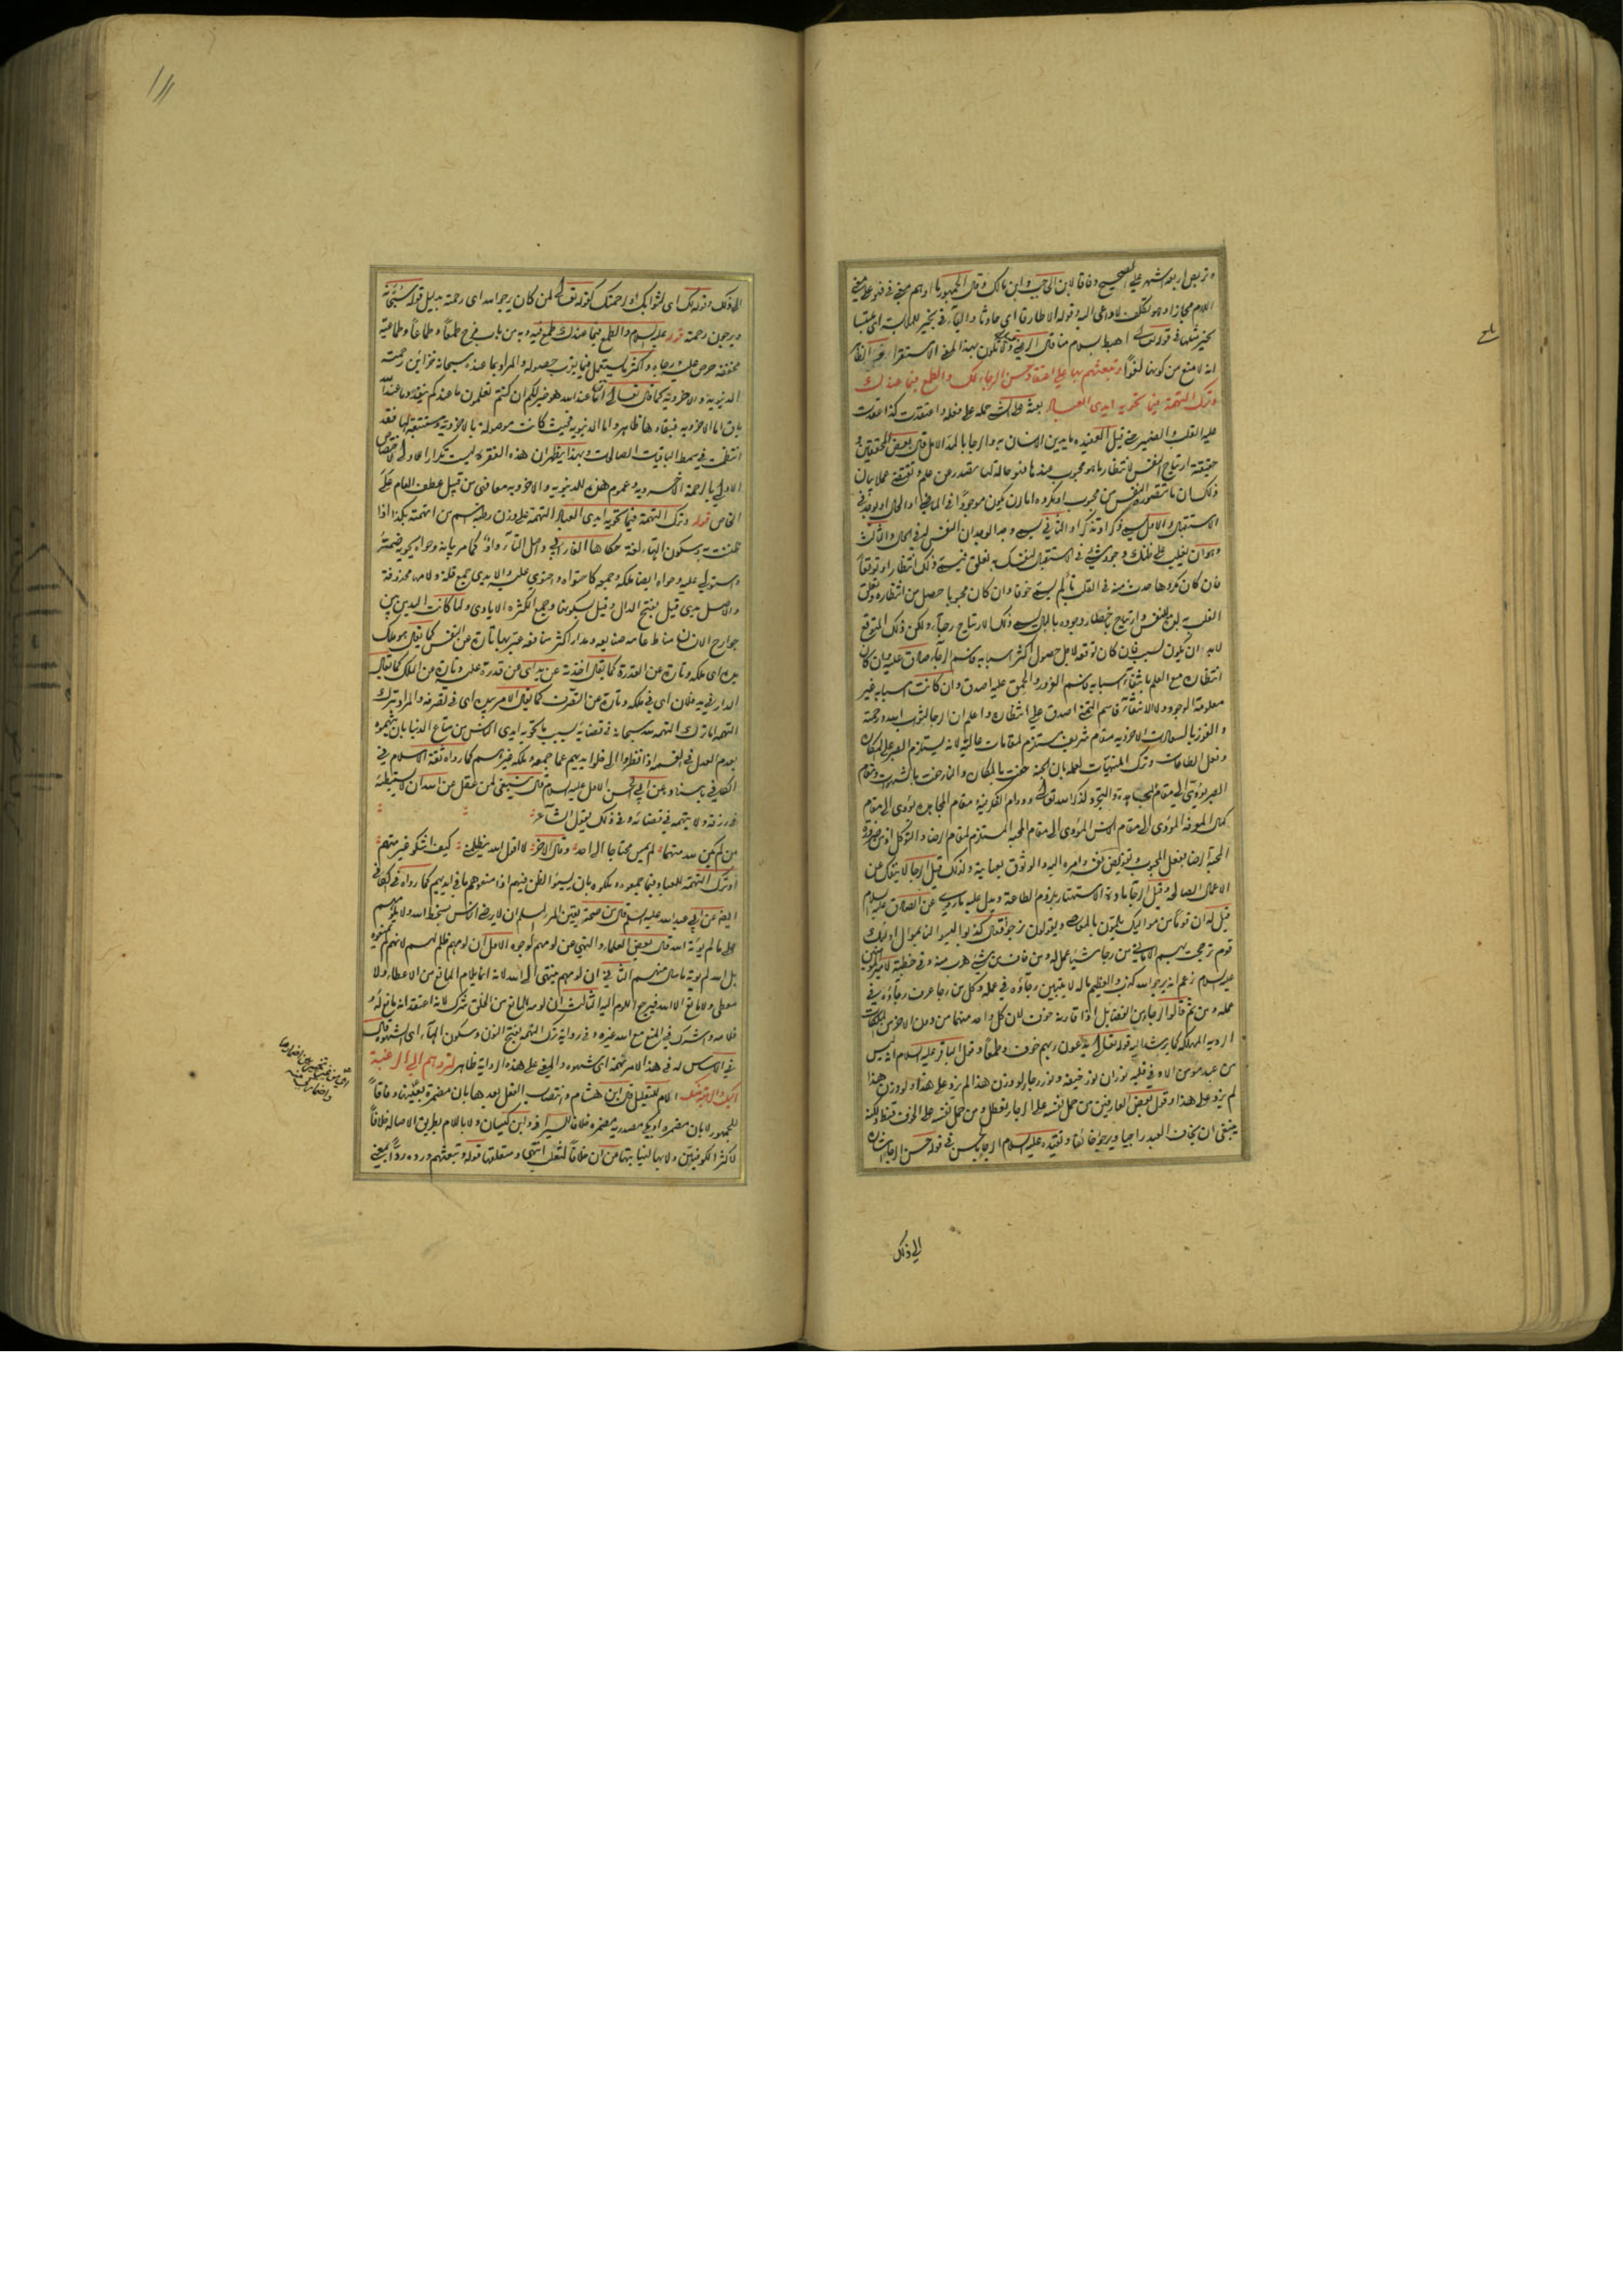 الحاجب وابن مالك وقال الجمهور
اللام مجازا وهو تكلف لا داعي اليه وقوله الا طارقا اي حادثا والباء في بخير للملابسة
بخير مثلها في قوله تعالى اهبط بسلام منا قال الرضي ولا تكون بهذا المعنى الا مستقرا
انه لا منع من كونها لغوا وتبعثهم بها على اعتقاد حسن الرجاء لك والطمع فيما عندك
وترك التهمة فيما تحويه ايدي العباد بعثه على الشيء حمله على فعله واعتقدت كذا عقدت
عليه القلب والضمير حتى قيل العقيدة ما يدين الانسان به والرجا بالمد الامل قال بعض المحققين
حقيقة ارتياح النفس لانتظار ما هو محبوب عندها فهو حالة لها تصدر عن علم وتقتضي عملا بيان
ذلك ان ما تتصوره النفس من محبوب او مكروه اما ان يكون موجودا في الماضي او الحال او يوجد في
الاستقبال والاول يسمى ذكرا وتذكرا والثاني يسمى وجدا لوجدان النفس له في الحال والثالث
وهو ان يغلب على ظنك وجود شيء في الاستقبال لنفسك به تعلق فيسمى ذلك انتظارا وتوقعا
فان كان مكروها حدث منه في القلب تألم يسمى خوفا وان كان محبوبا حصل من انتظاره وتعلق
القلب به لذة للنفس وارتياح باخطار وجوده بالبال يسمى ذلك الارتياح رجاء ولكن ذلك المتوقع
لابد ان يكون لسبب فان كان توقعه لاجل حصول اكثر اسبابه فاسم الرجاء صادق عليه وان كان
انتظاره مع العلم بانتفاء اسبابه فاسم الغرور والحمق عليه اصدق وان كانت اسبابه غير
معلومة الوجود ولا الانتفاء فاسم التمني اصدق على انتظاره واعلم ان الرجا لثواب الله ورحمته
والفوز بالسعادات الاخروية مقام شريف يستلزم لمقامات عالية لانه يستلزم الصبر على المكاره
وفعل الطاعات وترك المنهيات لعلمه بان الجنة حفت بالمكاره والنار حفت بالشهوات ومقام
الصبر يؤدي الى مقام المجاهدة والتجرد لذكر الله تعالى ودوام الفكر فيه ومقام المجاهدة يؤدي الى مقام
كمال المعرفة المؤدي الى مقام الانس المؤدي الى مقام المحبة المستلزم لمقام الرضا والتوكل اذ من ضرورة
المحبة الرضا بفعل المحبوب وتفويض نفسه وامره اليه والوثوق بعنايته ولذلك قيل الرجا لا ينفك عن
الاعمال الصالحة وقيل الرجا مادة الاستهتار بلزوم الطاعة ويدل عليه ما روي عن الصادق عليه السلام
قيل له ان قوما من مواليك يلمون بالمعاصي ويقولون نرجو فقال كذبوا ليسوا لنا بموال اولئك
قوم ترجحت بهم الاماني من رجا شيئا عمل له ومن خاف من شيء هرب منه وفي خطبة لامير المؤمنين
عليه السلام زعم انه يرجو الله كذب والعظيم ما له لا يتبين رجاؤه في عمله وكل من رجا عرف رجاؤه في
عمله ومن ثم قالوا الرجاء من الفضايل اذا قارنه خوف لان كل واحد منهما من دون الاخر من الملكات
الردية المهلكة كما يرشد اليه قوله تعالى يدعون ربهم خوفا وطمعا وقول الباقر عليه السلام انه ليس
من عبد مؤمن الا وفي قلبه نوران نور خيفة ونور رجاء لو وزن هذا لم يزد على هذا ولو وزن هذا
لم يزد على هذا وقول بعض العارفين من حمل نفسه على الرجاء تعطل ومن حمل نفسه على الخوف قنط ولكنه
ينبغي ان يخاف العبد راجيا ويرجو خائفا وتقييده عليه السلام الرجاء بالحسن في قوله حسن الرجاء اشارة
الى ذلك
الى ذلك وقوله لك اي لثوابك او لرحمتك كقوله تعالى لمن كان يرجو الله اي رحمته بدليل قوله سبحانه
ويرجون رحمته قوله عليه السلام والطمع فيما عندك طمع فيه وبه من باب فرح طمعا وطماعا وطماعية
مخففة حرص عليه ورجاه واكثر ما يستعمل فيما يقرب حصوله والمراد بما عنده سبحانه خزائن رحمته
الدنيوية والاخروية كما قال تعالى انما عند الله هو خير لكم ان كنتم تعلمون ما عندكم ينفد وما عند الله
باق اما الاخروية فبقاءها ظاهر واما الدنيوية فحيث كانت موصولة بالاخروية ومستتبعة لها فقد
انتظمت في سمط الباقيات الصالحات وبهذا يظهر ان هذه الفقرة ليست تكرارا للاولى
الاولى بالرحمة الاخروية وعموم هذه للدنيوية والاخروية معا فهي من قبيل عطف العام على
الخاص قوله وترك التهمة فيما تحويه ايدي العباد التهمة على وزن رطبة اسم من اتهمته بكذا اذا
ظننته به وسكون الهاء لغة حكاها الفارابي واصل التاء واو كما مر بيانه وحواه يحويه ضمه
واستولى عليه وحواه ايضا ملكه وجمعه كاحتواه واحتوى عليه والايدي جمع قلة ولامها محذوفة
والاصل يدي قيل بفتح الدال وقيل بسكونها وجمع الكثرة الايادي ولما كانت اليد من بين
جوارح الانسان مناط عامة صنايعه ومدار اكثر منافعه عبر بها تارة عن النفس كما يقال هو ملك
يده اي ملكه وتارة عن القدرة كما يقال اخذته عن يد اي عن قدرة عليه وتارة عن الملك كما يقال
الدار في يد فلان اي في ملكه وتارة عن التصرف كما يقال الامر بيده اي في تصرفه والمراد بترك
التهمة اما ترك التهمة لله سبحانه في قضائه بسبب ما تحويه ايدي الناس من متاع الدنيا بان يتهموه
بعدم العدل في القسمة اذا نظروا الى خلو ايديهم عما جمعه وملكه غيرهم كما رواه ثقة الاسلام في
الكافي باسناده عن ابي الحسن الاول عليه السلام قال ينبغي لمن عقل عن الله ان لا يستبطئه
في رزقه ولا يتهمه في قضائه وفي ذلك يقول الشاعر
من لم يكن لله متهما لم يمس محتاجا الى احد وقال الاخر لا اقول الله يظلمني كيف اشكو غير متهم
او ترك التهمة للعباد فيما جمعوه وملكوه بان يسيئوا الظن فيهم اذا منعوهم ما في ايديهم كما رواه في الكافي
ايضا عن ابي عبد الله عليه السلام قال من صحة يقين المرء المسلم ان لا يرضي الناس بسخط الله ولا يلومهم
على ما لم يؤته الله قال بعض العلماء والنهي عن لومهم لوجوه الاول ان لومهم ظلم لهم لانهم لم يمنعوه
بل الله لم يؤته ما سال منهم الثاني ان لومهم ينتهي الى الله لانه انما يلام المانع من الاعطاء ولا
معطي ولا مانع الا الله فيرجع اللوم اليه الثالث ان لومه المانع من الخلق شرك لانه اعتقد انه مانع له
خلا صه واشرك في المنع مع الله غيره وفي رواية ترك النهمة بفتح النون وسكون الهاء اي الشهوة قال
في الاساس له في هذا الامر نهمة اي شهوة والمعنى على هذه الرواية ظاهر لتردهم الى الرغبة
اليك والرهبة منك اللام للتعليل قال ابن هشام وانتصاب الفعل بعدها بان مضمرة بعينها وفاقا
للجمهور لا بان مضمرة او بكي مصدرية مضمرة خلافا للسيرافي وابن كيسان ولا باللام بطريق الاصالة خلافا
لاكثر الكوفيين ولا بها لنيابتها من ان خلافا لثعلب انتهى ومتعلقها قوله وتبعثهم ورده ردا بمعنى